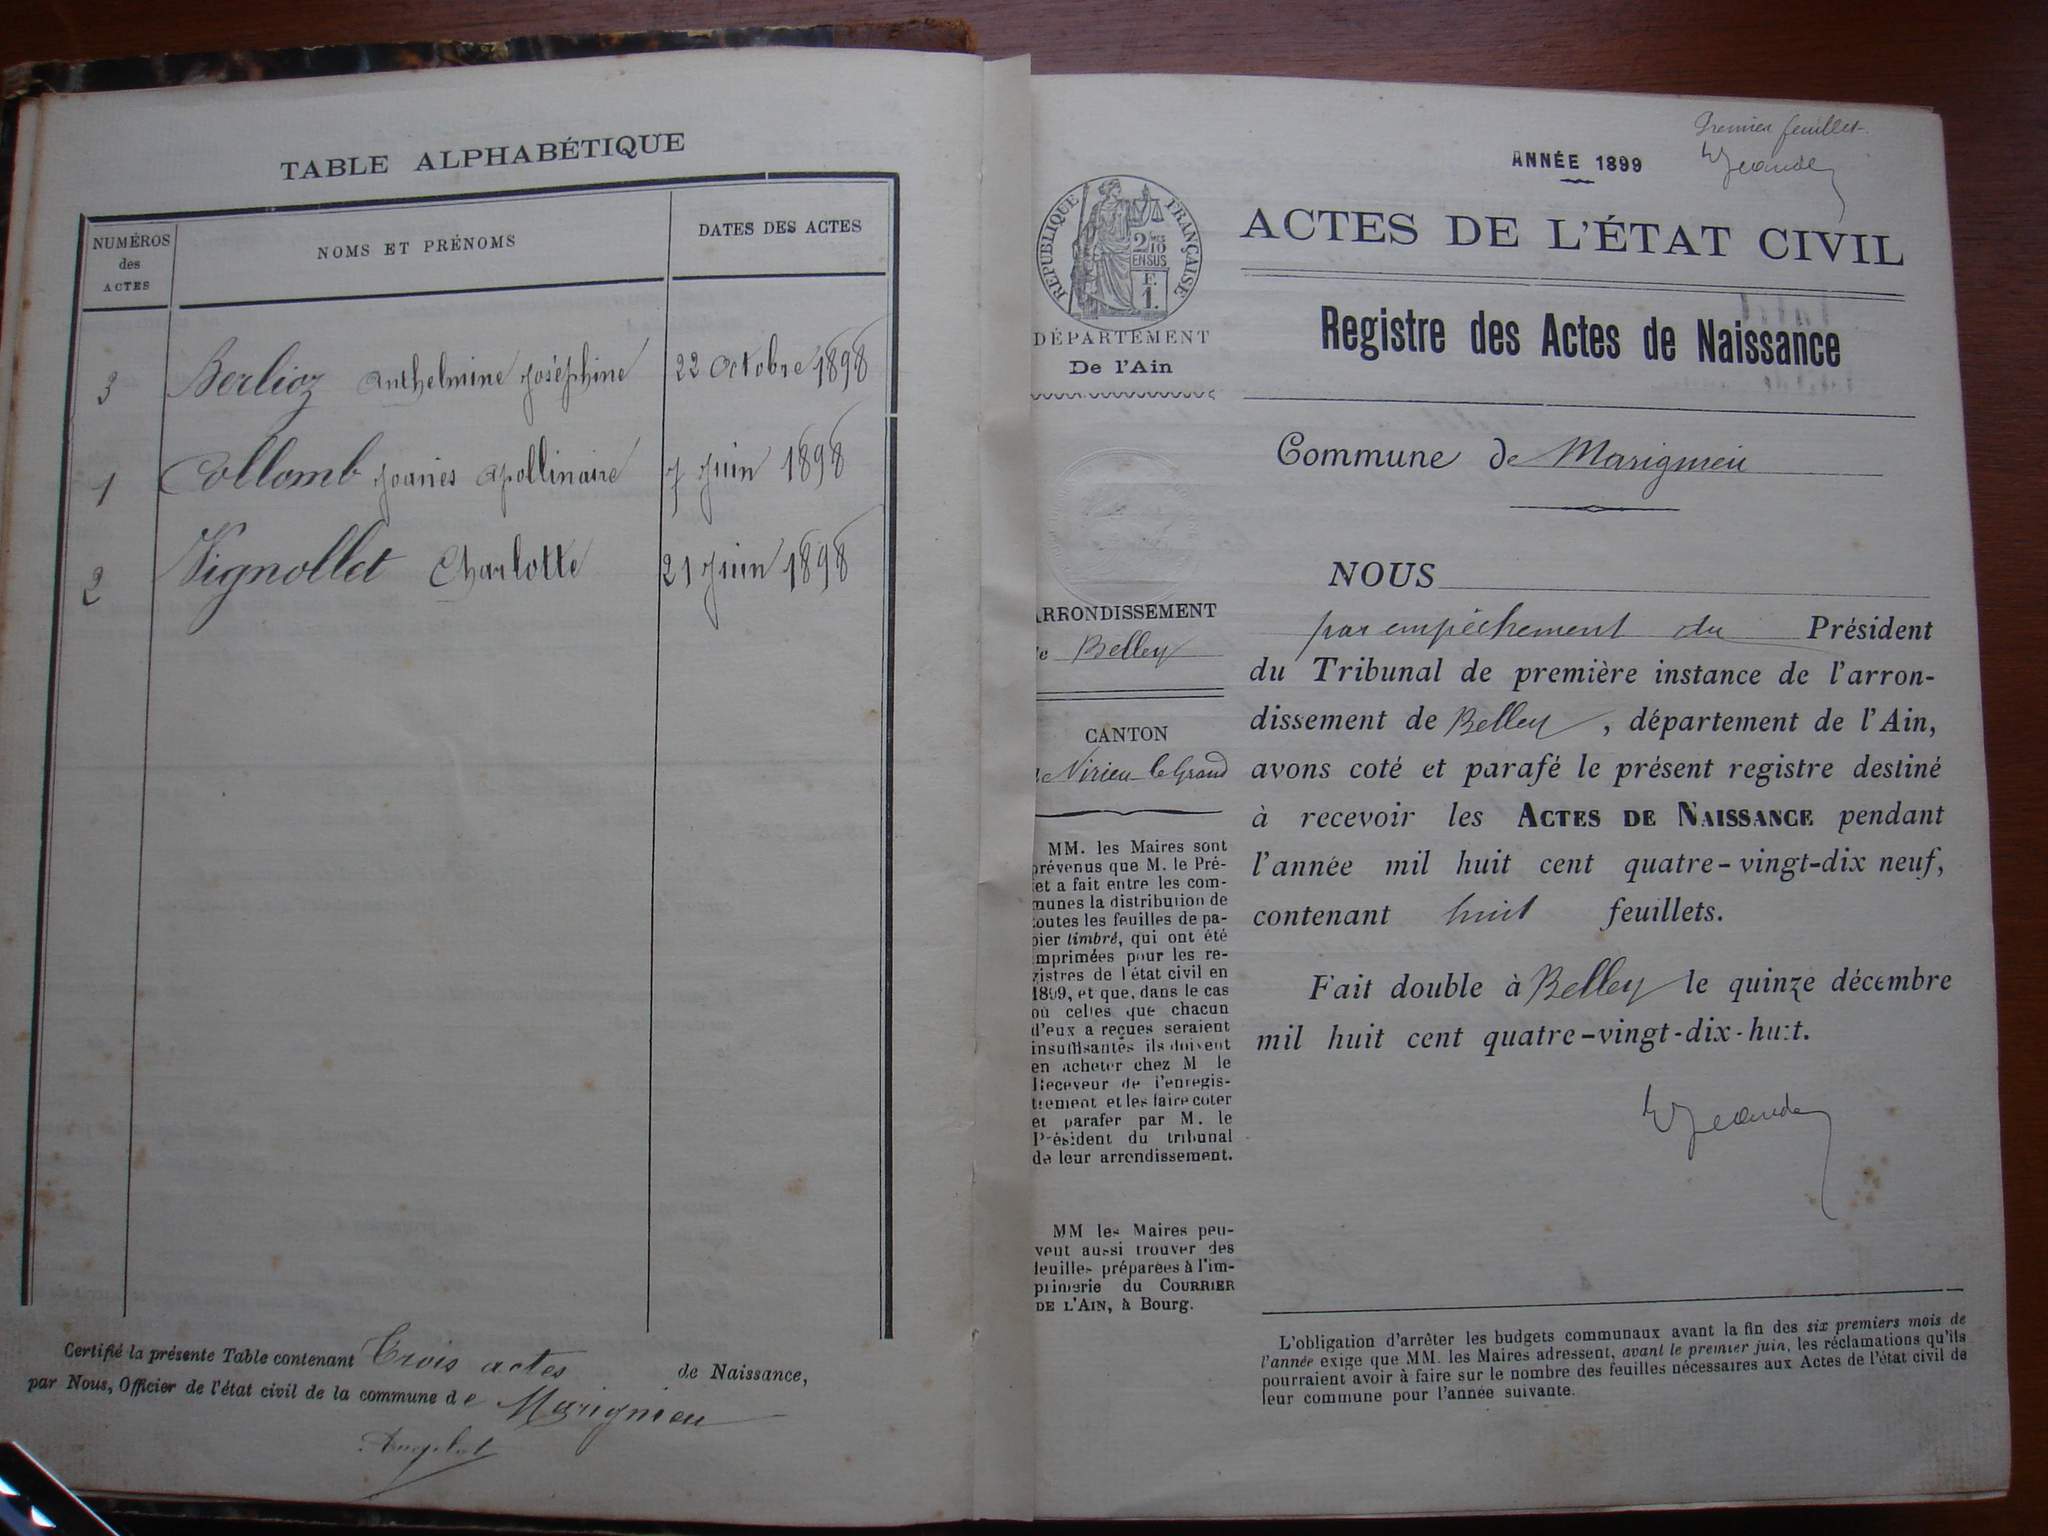 TABLE ALPHABÉTIQUE
NUMÉROS
des
ACTES
NOMS ET PRÉNOMS
DATES DES ACTES
3 Berlioz Anthelmine Joséphine 22 Octobre 1898
1 Collomb Joanès Apollinaire 7 Juin 1898
2 Vignollet Charlotte 21 Juin 1898
Certifié la présente Table contenant Trois actes de Naissance,
par Nous, Officier de l'état civil de la commune de Marignieu
Premier feuillet
ANNÉE 1899
RÉPUBLIQUE FRANÇAISE
2/10
EN SUS
F.
1.
DÉPARTEMENT
De l'Ain
ACTES DE L'ÉTAT CIVIL
Registre des Actes de Naissance
Commune de Marignieu
ARRONDISSEMENT
de Belley
CANTON
de Virieu le Grand
MM. les Maires sont
prévenus que M. le Pré-
fet a fait entre les com-
munes la distribution de
toutes les feuilles de pa-
pier timbré, qui ont été
imprimées pour les re-
gistres de l'état civil en
1899, et que, dans le cas
où celles que chacun
d'eux a reçues seraient
insuffisantes ils doivent
en acheter chez M le
Receveur de l'enregis-
trement et les faire coter
et parafer par M. le
Président du tribunal
de leur arrondissement.
MM les Maires peu-
vent aussi trouver des
feuilles préparées à l'im-
primerie du COURRIER
DE L'AIN, à Bourg.
NOUS
par empêchement du Président
du Tribunal de première instance de l'arron-
dissement de Belley, département de l'Ain,
avons coté et parafé le présent registre destiné
à recevoir les ACTES DE NAISSANCE pendant
l'année mil huit cent quatre-vingt-dix neuf,
contenant huit feuillets.
Fait double à Belley le quinze décembre
mil huit cent quatre-vingt-dix-huit.
L'obligation d'arrêter les budgets communaux avant la fin des six premiers mois de
l'année exige que MM. les Maires adressent, avant le premier juin, les réclamations qu'ils
pourraient avoir à faire sur le nombre des feuilles nécessaires aux Actes de l'état civil de
leur commune pour l'année suivante.